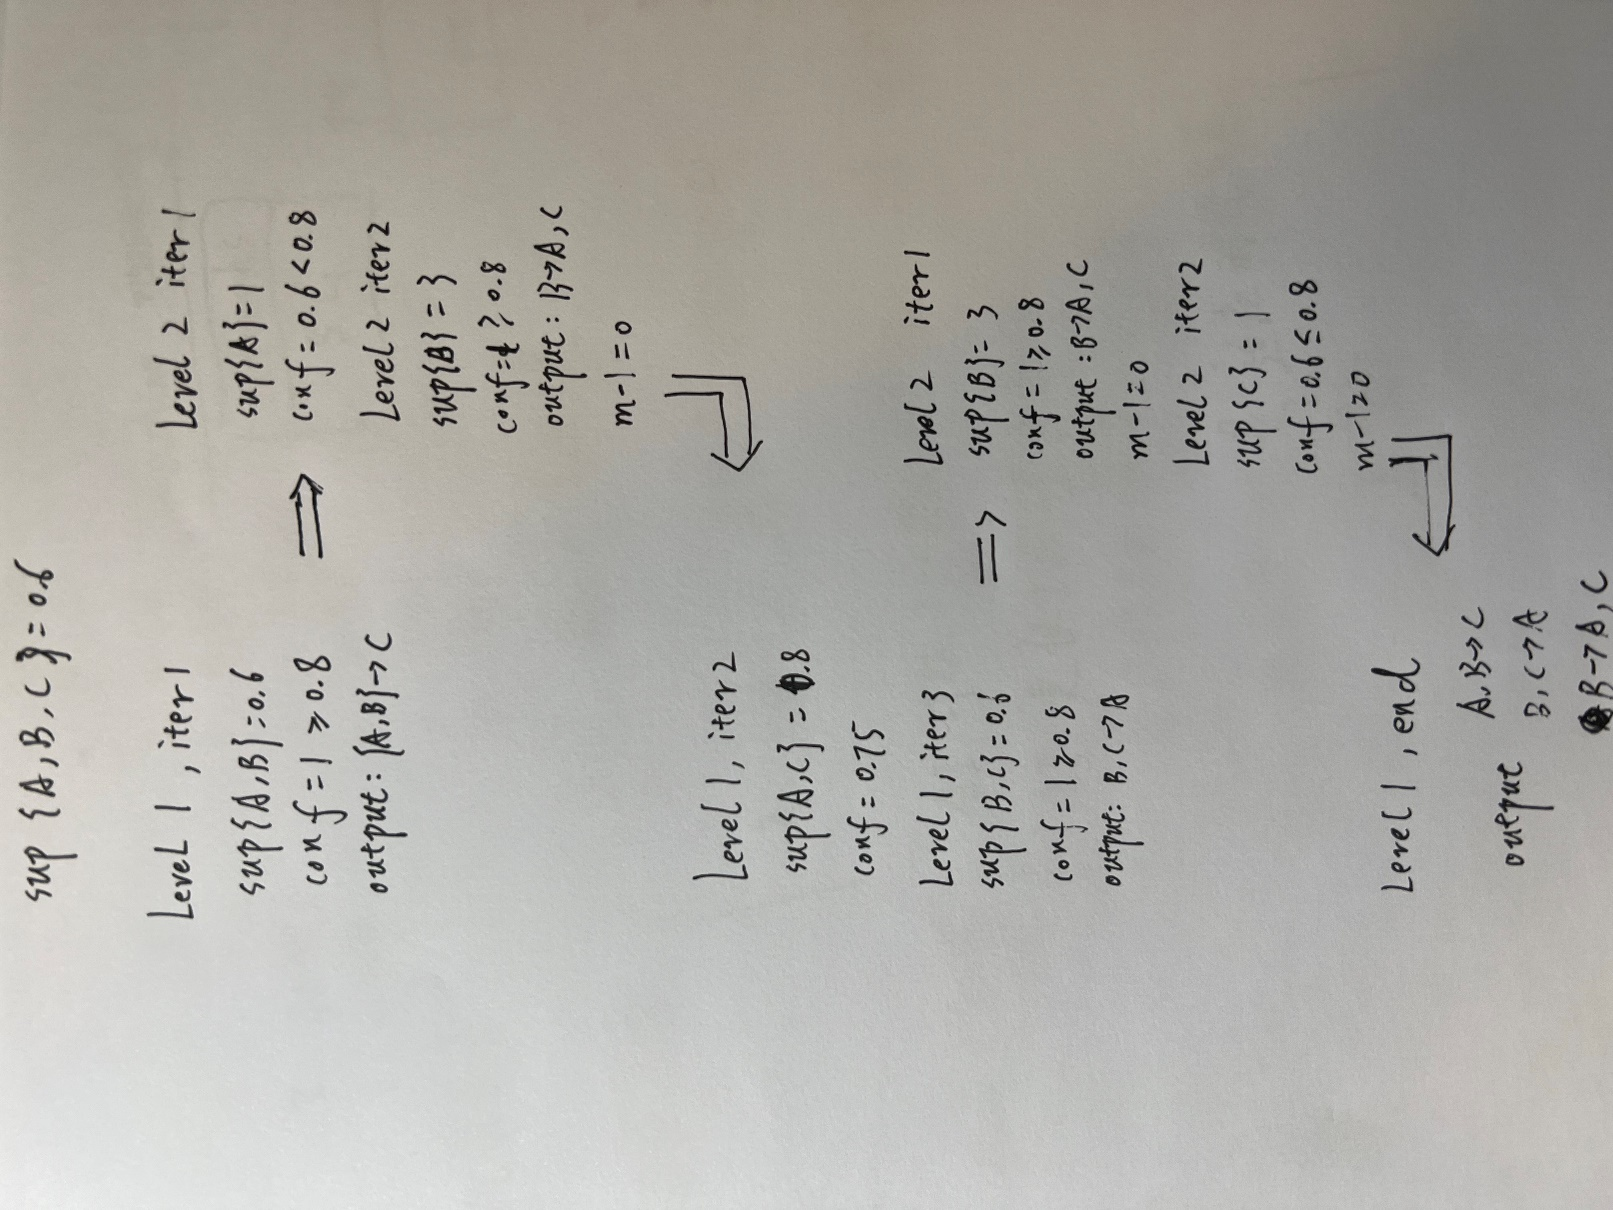 sup {A,B,C} = 0.6
Level 1, iter1
sup{A,B}=0.6
conf = 1 ⩾ 0.8
output: {A,B}→C
⇒
Level 2 iter1
sup{A}=1
conf = 0.6 < 0.8
Level 2 iter2
sup{B} = 3
⩾ 0.8
output: B→A,C
m-1=0
Level 1, iter2
sup{A,C} = 0.8
conf = 0.75
Level 1, iter3
sup{B,C}=0.6
conf = 1 ⩾ 0.8
output: B,C→A
⇒
Level 2 iter1
sup{B}= 3
conf = 1 ⩾ 0.8
output : B→A,C
m-1=0
Level 2 iter2
sup{C} = 1
conf = 0.6 ≤ 0.8
m-1=0
Level 1, end
output A,B→C
B,C→A
B→A,C